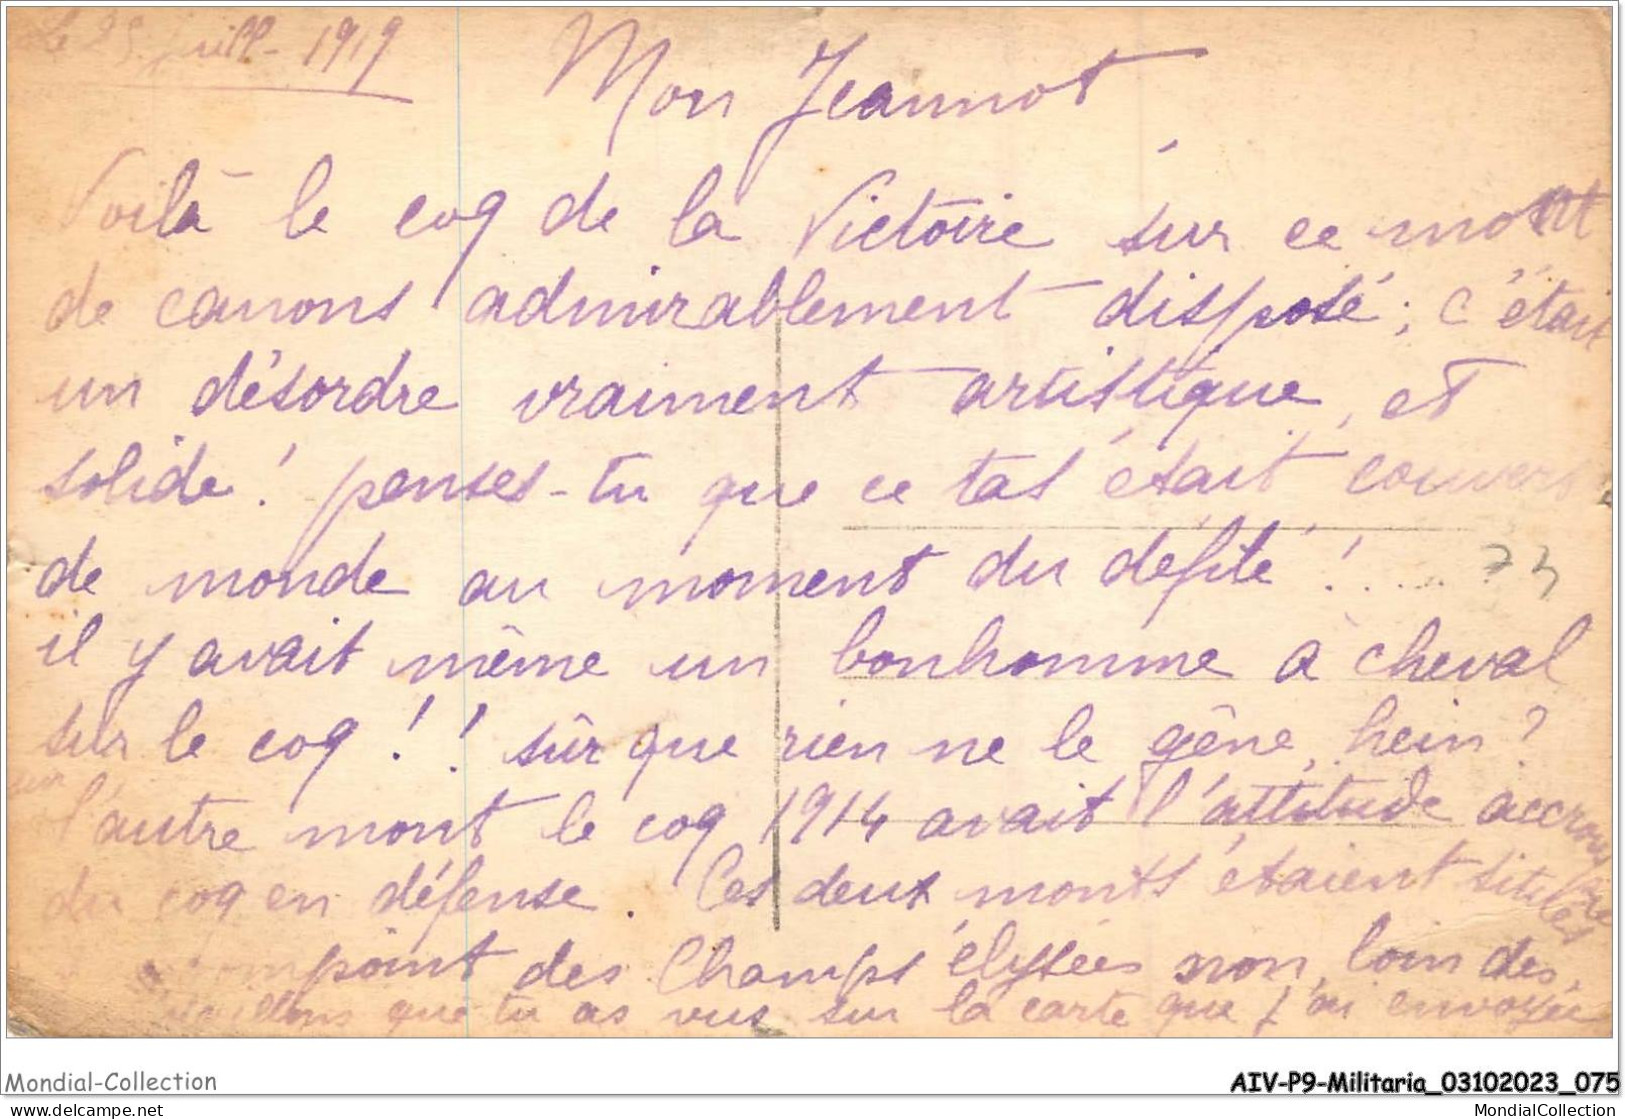 Le 25 juill- 1919
Mon Jeannot
Voilà le coq de la Victoire sur ce mont
de canons admirablement disposé ; c'était
un désordre vraiment artistique, et
solide ! penses-tu que ce tas était couvert
de monde au moment du défilé ! ... 73
il y avait même un bonhomme à cheval
sur le coq ! ! sûr que rien ne le gêne, hein ?
sur
l'autre mont le coq 1914 avait l'attitude
du coq en défense. Ces deux monts étaient situés
point des Champs élysées non loin des
que tu as vus sur la carte que j'ai envoyée
Mondial-Collection
AIV-P9-Militaria_03102023_075
www.delcampe.net
MondialCollection